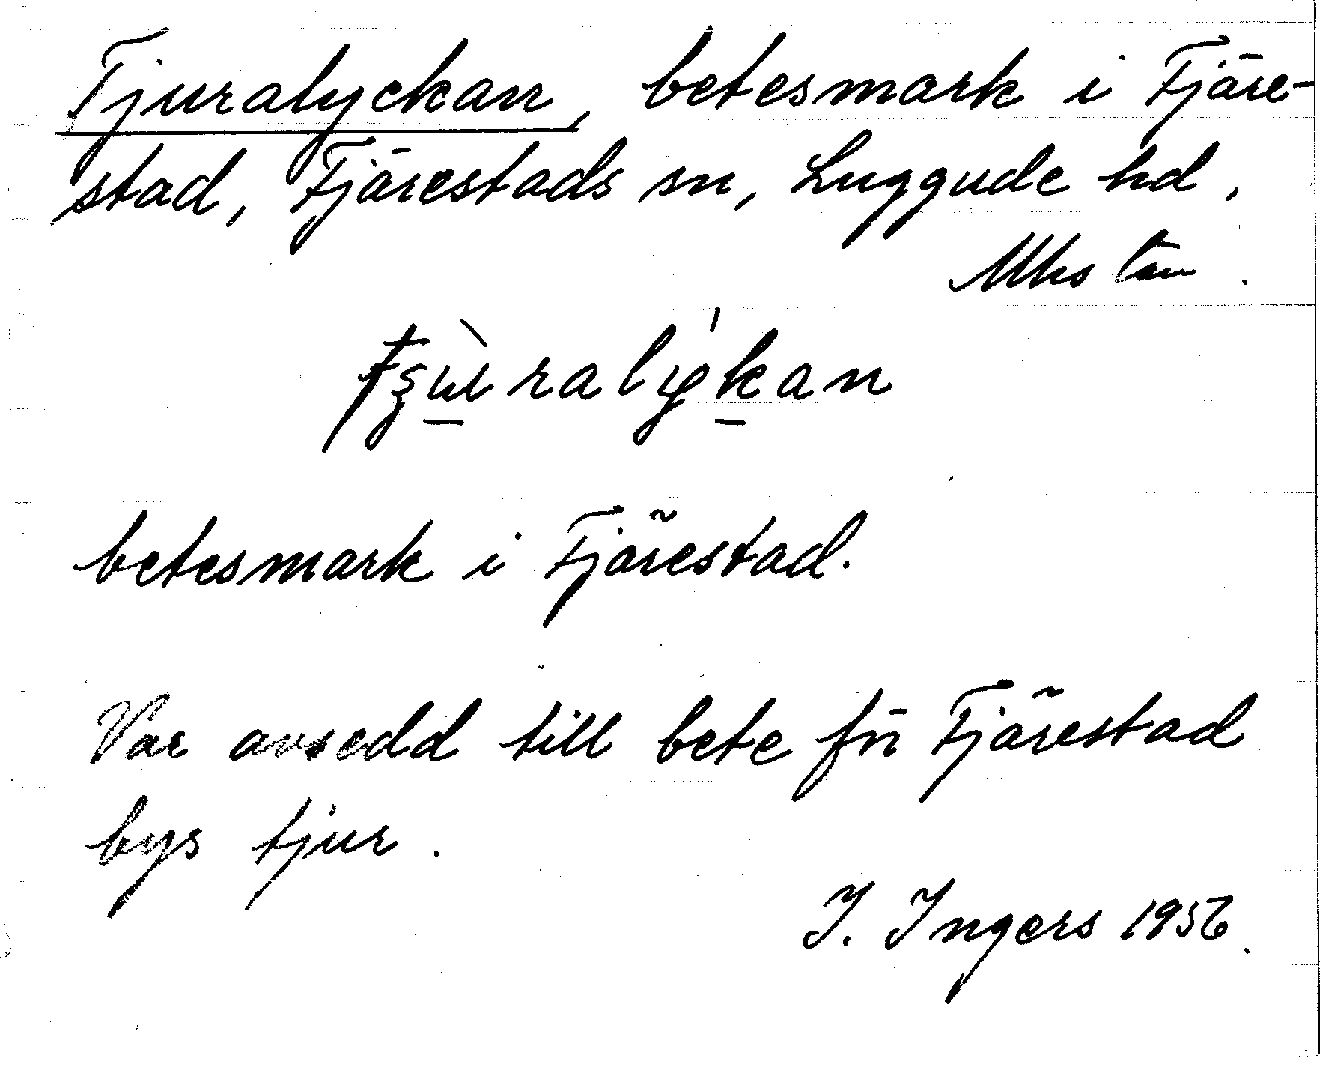 Tjuralyckan, betesmark i Fjäre-
stad, Fjärestads sn, Luggude hd,
Mhs län.
betesmark i Fjärestad.
Var avsedd till bete för Fjärestad
bys tjur.
I. Ingers 1956.